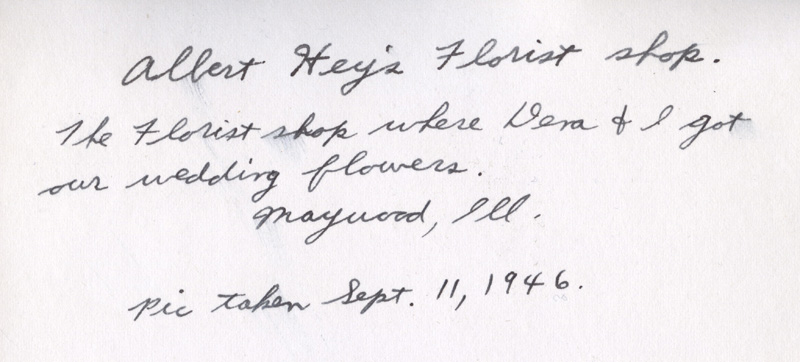 Albert Hey's Florist shop.
The Florist shop where Vera & I got
our wedding flowers.
Maywood, Ill.
pic taken Sept. 11, 1946.